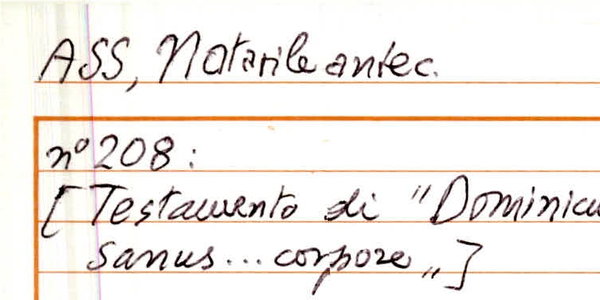 ASS, Notarile antec.
n° 208:
[Testamento di "Dominicu
sanus... corpore„]